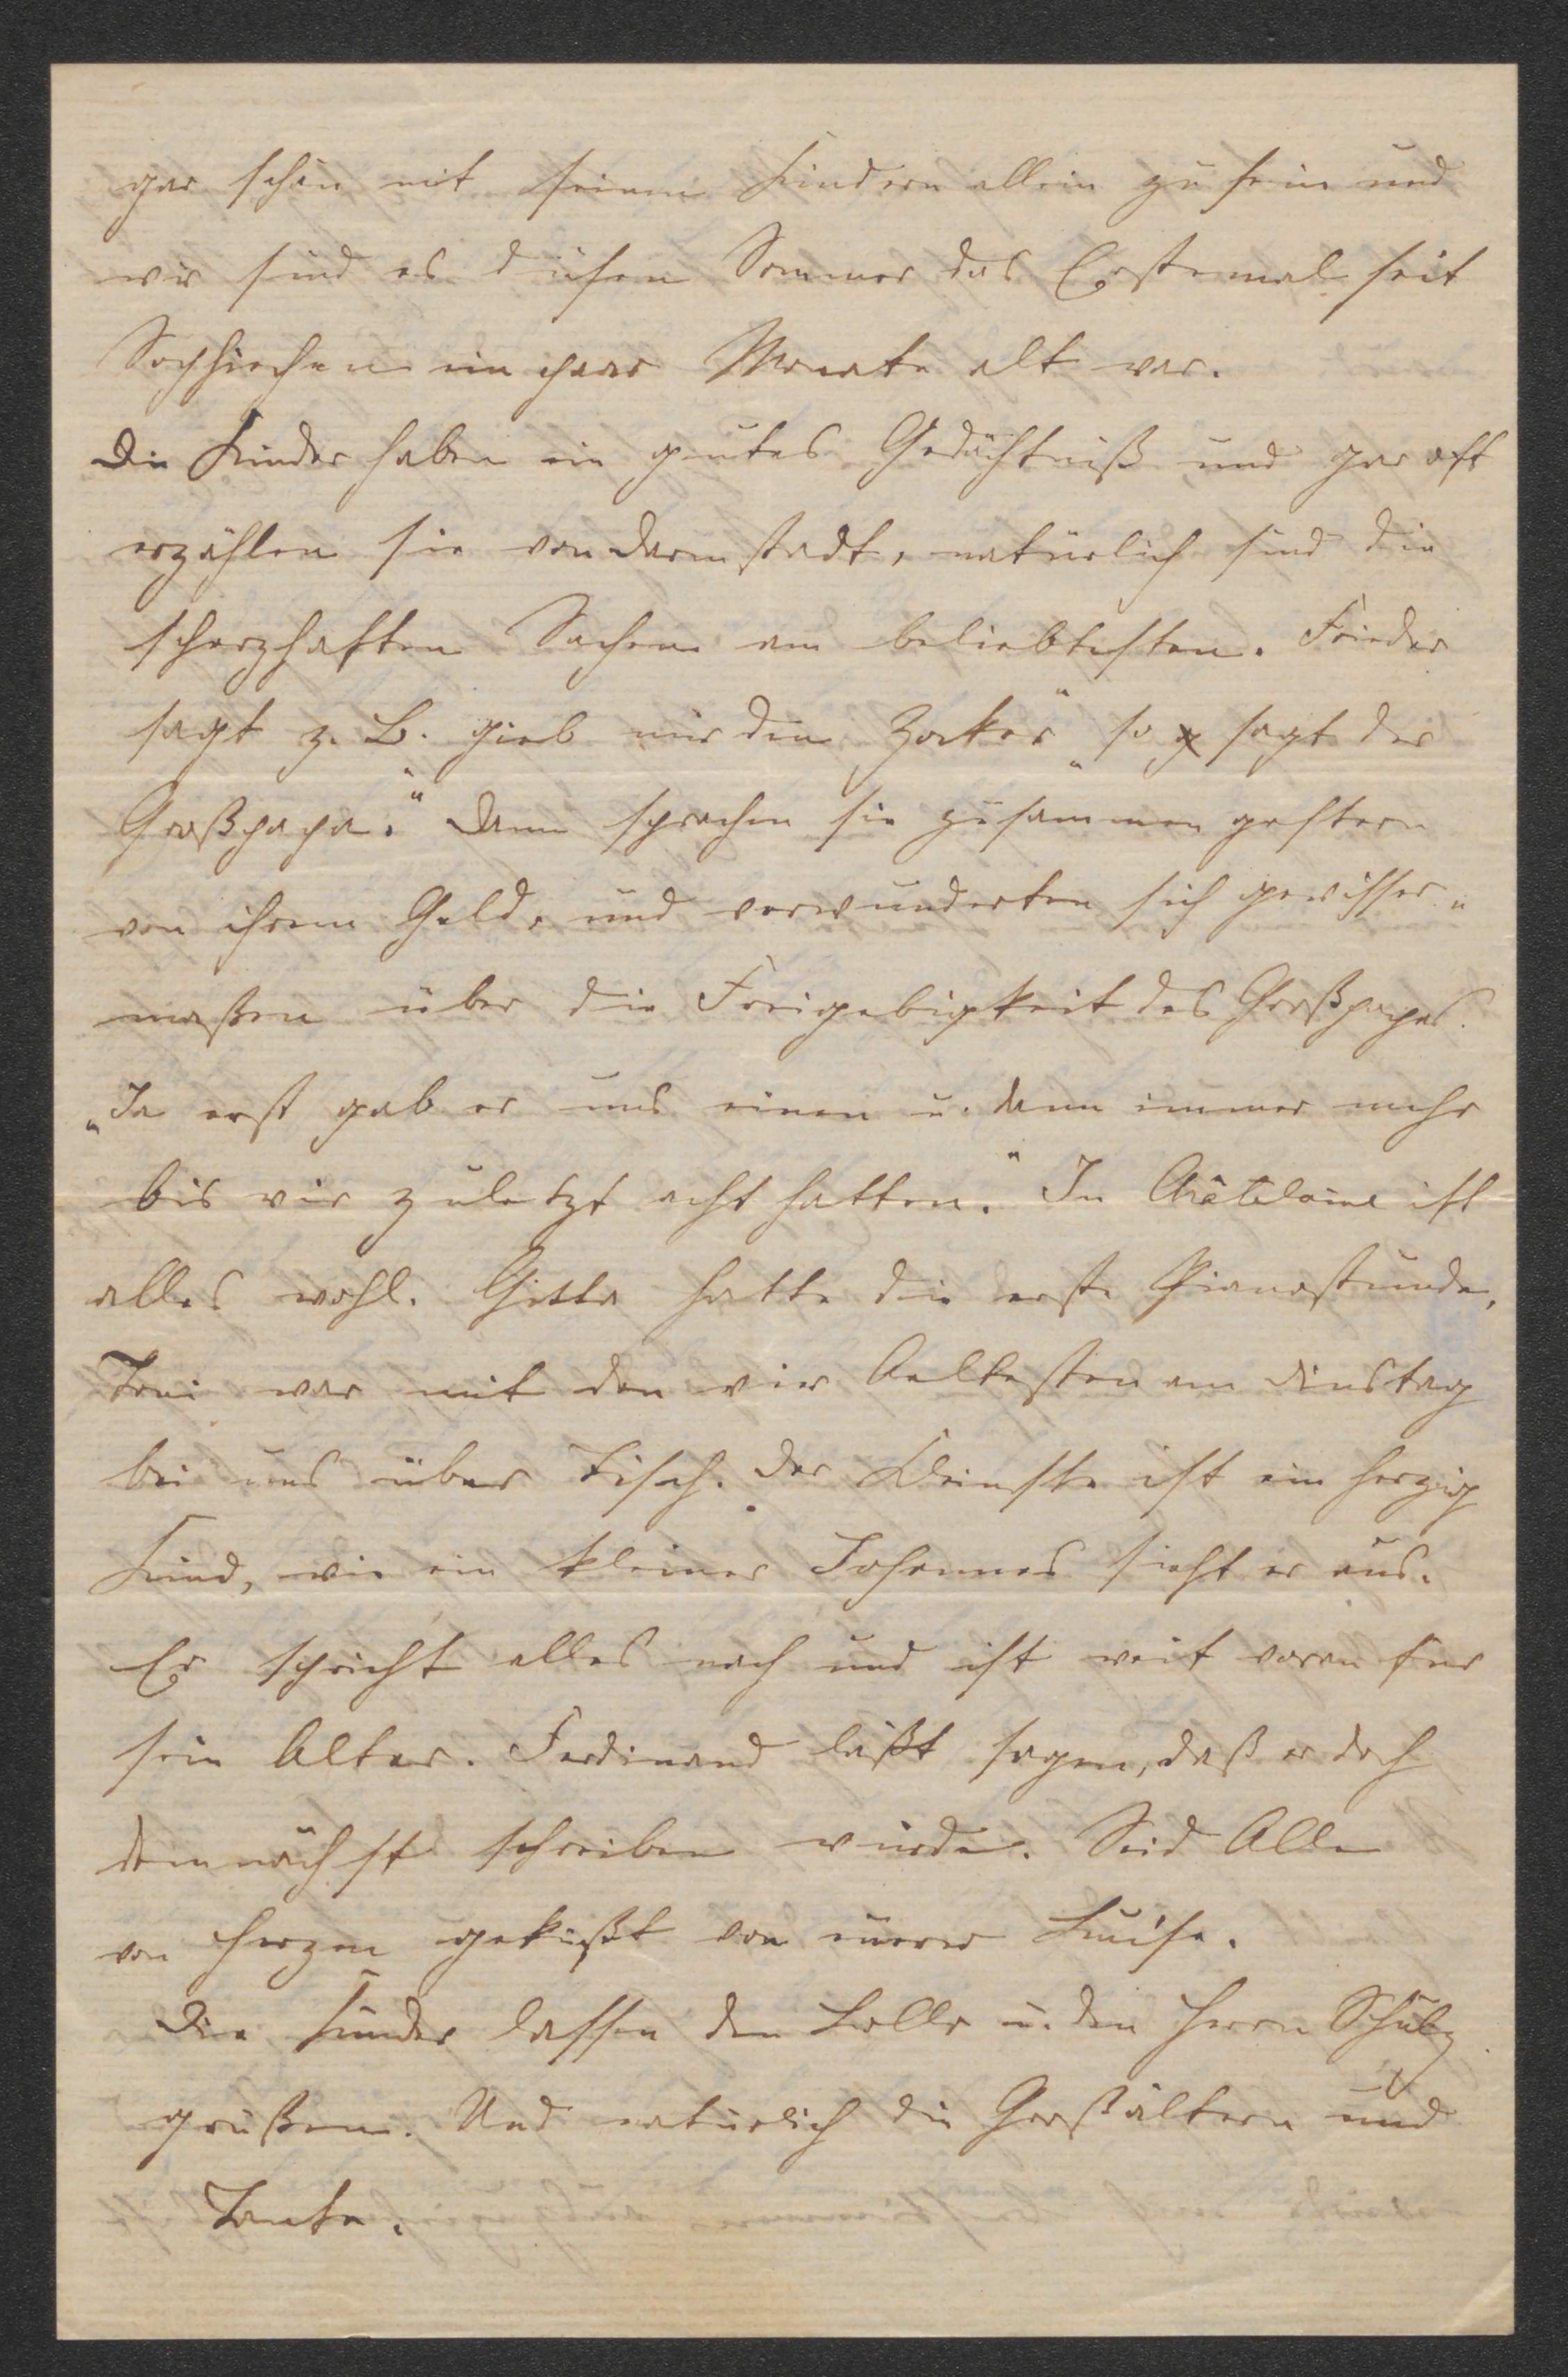 gar schön mit seinen Kindern allein zu sein und
wir sind es diesen Sommer das Erstemal seit
Sophiechen ein paar Monate alt war.
Die Kinder haben ein gutes Gedächtniß und gar oft
erzählen sie von Darmstadt, natürlich sind die
scherzhaften Sachen am beliebtesten. Frieder
sagt z. B. gieb mir den Zocker" so sagt der
Großpapa." Dann sprachen sie zusammen gestern
von ihrem Geld, und verwunderten sich gewisser-
maßen über die Freigebigkeit des Großpapas.
„Ja erst gab er uns einen u. dann immer mehr
bis wir zuletzt acht hatten." In Châtelaine ist
alles wohl. Gitta hatte die erste Pianostunde,
Toni war mit den vier Aeltesten am Dinstag
bei uns über Tisch. Der Kleinste ist ein herzig
Kind, wie ein kleiner Johannes sieht er aus.
Er spricht alles nach und ist weit voran für
sein Alter. Ferdinand läßt sagen, daß er doch
demnächst schreiben würde. Seid Alle
von Herzen geküßt von eurer Luise.
Die Kinder lassen den Lolo u. den Herrn Schulz
grüßen. Und natürlich die Großältern und
Tante.